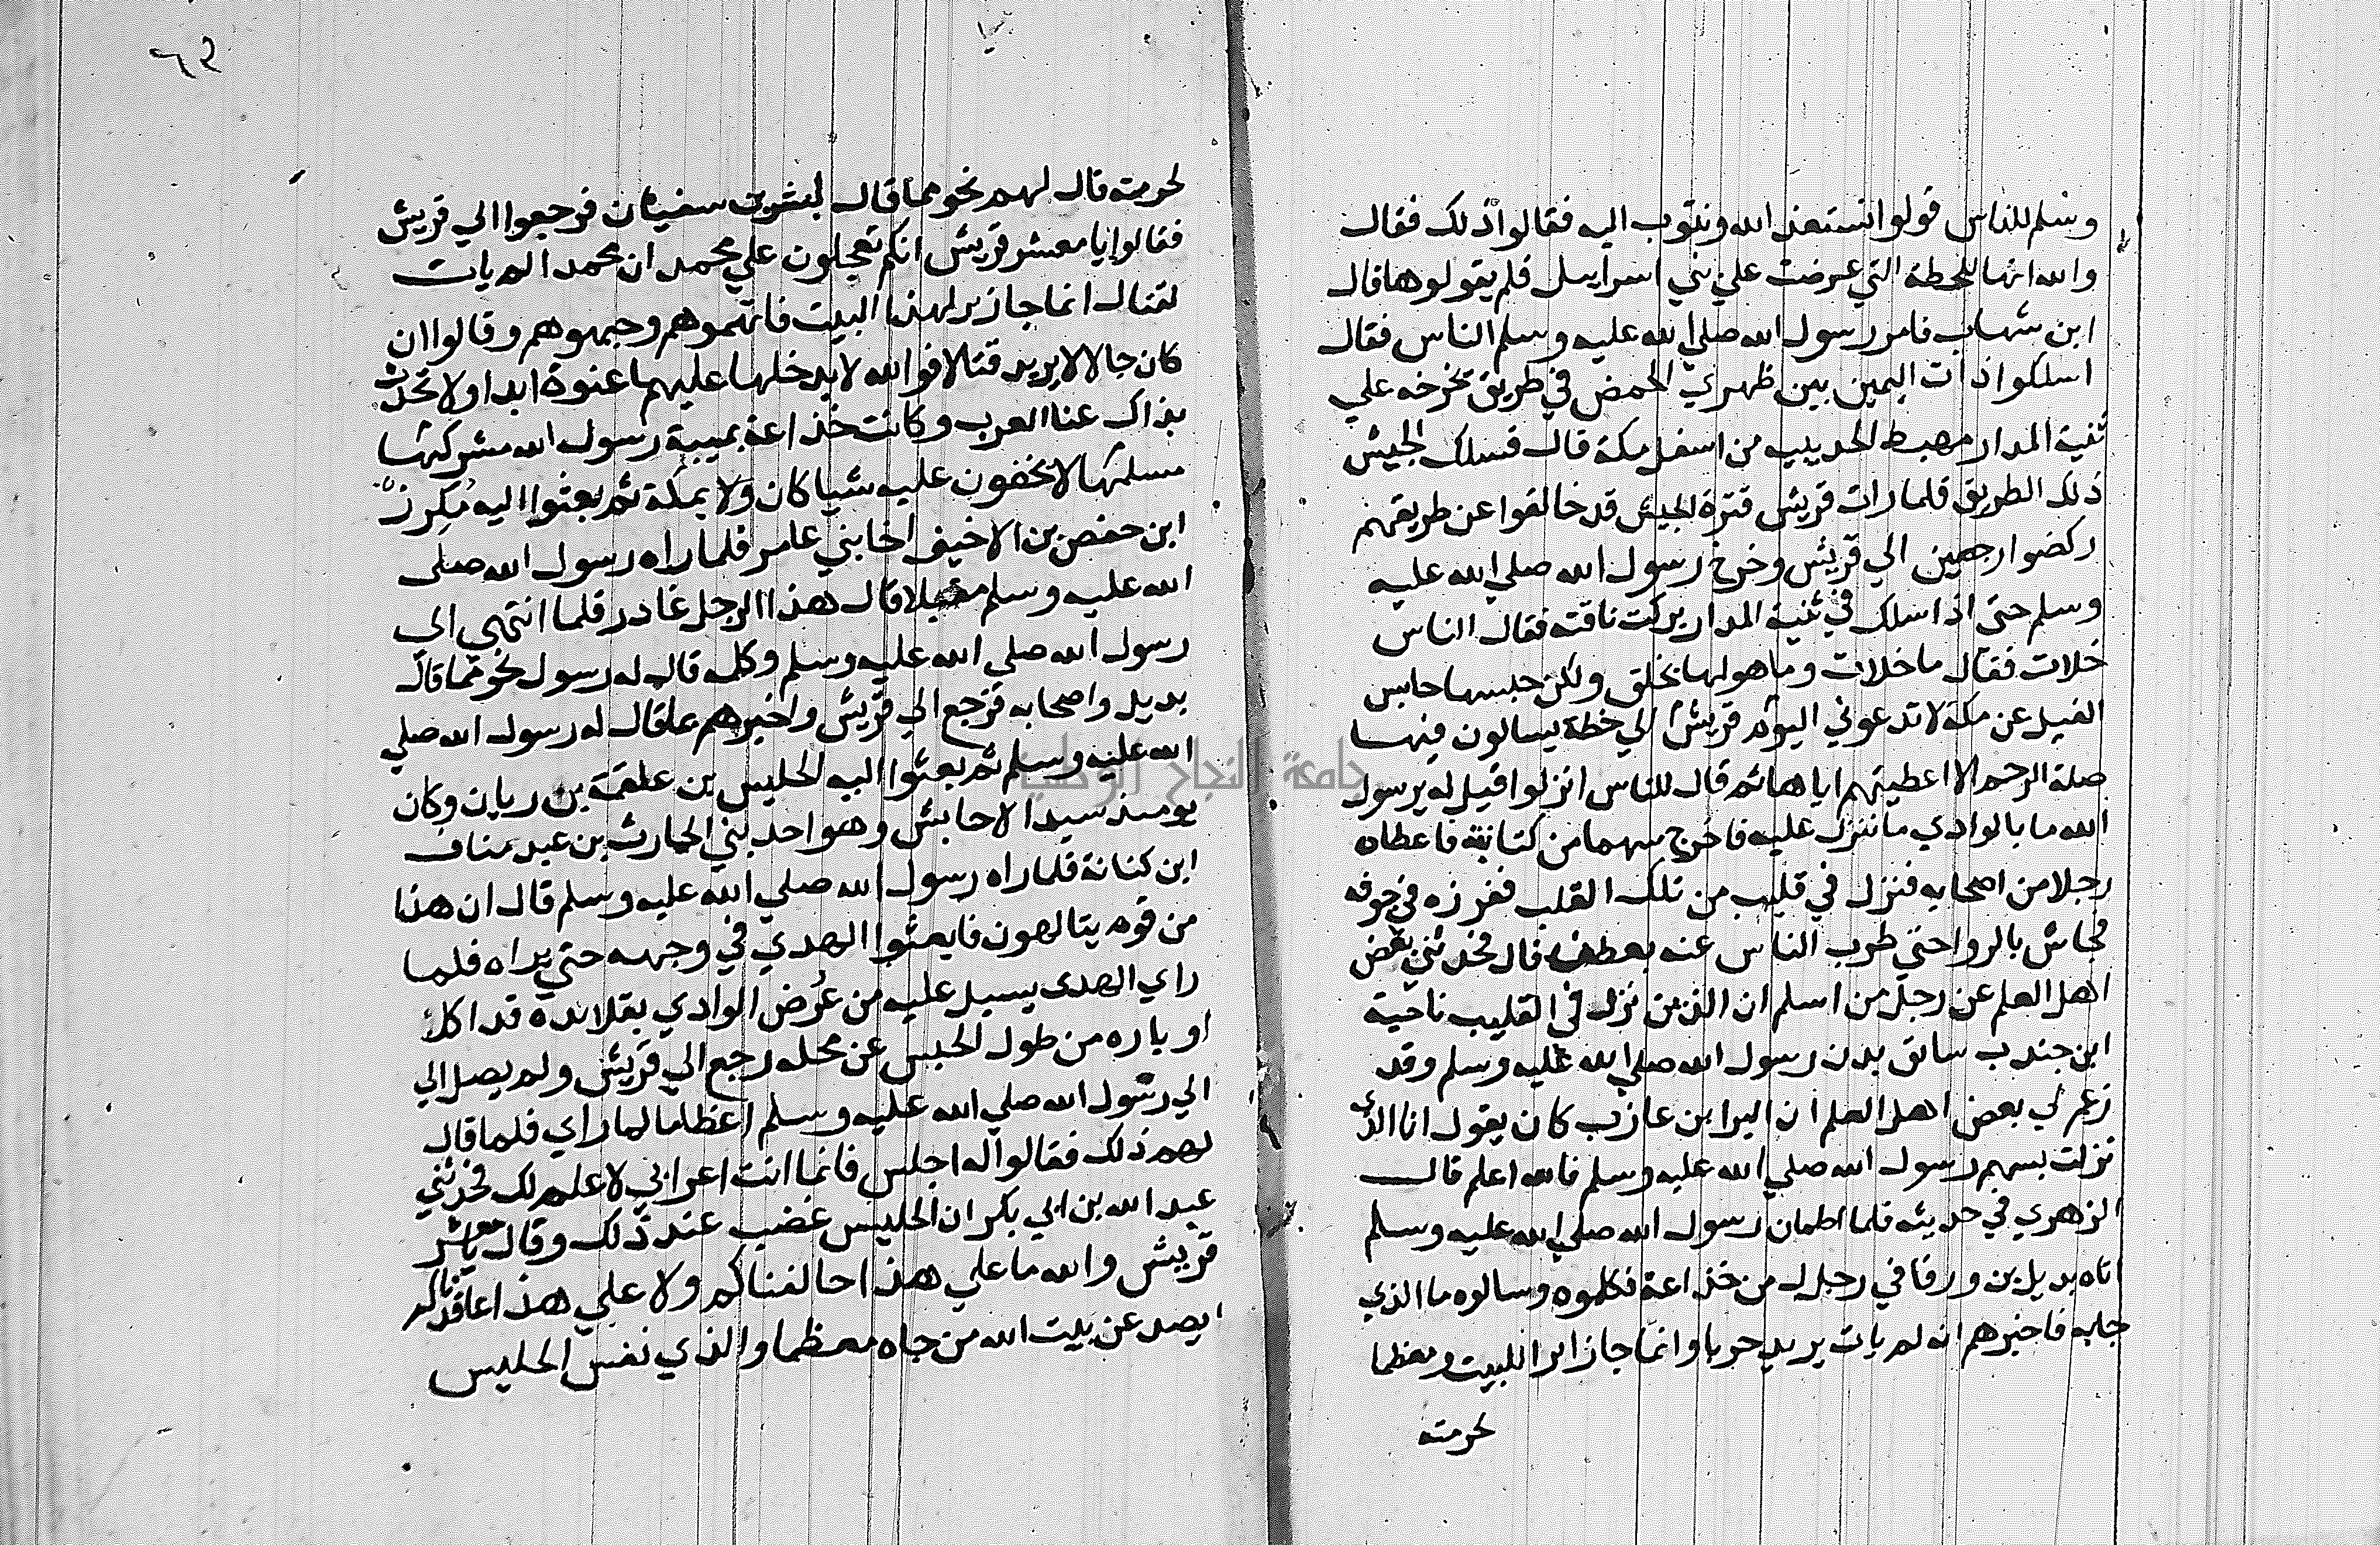 وسلم للناس قولوا نستغفر الله ونتوب اليه فقالوا ذلك فقال
والله انها للحطة التي عرضت علي بني اسراييل فلم يقولوها قال
ابن شهاب فامر رسول الله صلي الله عليه وسلم الناس فقال
اسلكوا ذات اليمين بين ظهري الحمض في طريق تخرخه علي
ثنية المدار مهبط الحديبيه من اسفل مكة قال فسلك الجيش
ذلك الطريق فلما رات قريش قترة الجيش قد خالفوا عن طريقهم
ركضوا رجعين الي قريش وخرج رسول الله صلي الله عليه
وسلم حتي اذا سلك في ثنية المدار بركت ناقته فقال الناس
خلات فقال ما خلات وما هو لها بخلق ولكن حبسها حابس
الفيل عن مكة لا تدعوني اليوم قريش الي خطة يسالون فيها
صلة الرحم الا اعطيتهم اياها ثم قال للناس انزلوا قيل له يرسول
الله ما بالوادي ما ننزل عليه فاخرج سهما من كنانته فاعطاه
رجلا من اصحابه فنزل في قليب من تلك القلب فغرزه في جوفه
فجاش بالروا حتي طرب الناس عنه بعطن قال فحدثني بعض
اهل العلم عن رجل من اسلم ان الذين نزل في القليب ناحية
ابن جندب سائق بدن رسول الله صلي الله عليه وسلم وقد
زعم لي بعض اهل العلم ان البرا بن عازب كان يقول انا الذي
نزلت بسهم رسول الله صلي الله عليه وسلم فالله اعلم قال
الزهري في حديثه فلما اطمان رسول الله صلي الله عليه وسلم
اتاه بديل بن ورقا في رجال من خذاعة فكلموه وسالوه ما الذي
جابه فاخبرهم انه لم يات يريد حربا وانما جا زايرا للبيت ومعظما
لحرمته
٦٢
لحرمته قال لهم نحو مما قال لبشر بن سفيان فرجعوا الي قريش
فقالوا يا معشر قريش انكم تعجلون علي محمد ان محمد الم يات
لقتال انما جا زير لهذا البيت فاتهموهم وجبهوهم وقالوا ان
كان جا لا لا يريد قتالا فوالله لا يدخلها عليهما عنوة ابدا ولا تحدث
بذاك عنا العرب وكانت خذاعة بعيبة رسول الله مشركها
مسلمها لا يخفون عليه شيا كان ولا بمكة ثم بعثوا اليه مكرز
ابن حفص بن الاخيف اخا بني عامر فلما راه رسول الله صلى
الله عليه وسلم مقبلا قال هذا الرجل غادر فلما انتهي الي
رسول الله صلي الله عليه وسلم وكلمه قال له رسول نحو مما قال
بديل واصحابه فرجع الي قريش واخبرهم عا قال له رسول الله صلي
الله عليه وسلم ثم بعثوا اليه الحليس بن علقمة بن ريان وكان
يومئذ سيد الاحابش وهو احد بني الحارث بن عبد مناف
ابن كنانة فلما راه رسول الله صلي الله عليه وسلم قال ان هذا
من قوم يتالهون فابعثوا الهدي في وجهه حتي يراه فلما
راي الهدى يسيل عليه من عرض الوادي بقلائده قد اكل
اوباره من طول الحبس عن محله رجع الي قريش ولم يصل الي
الي رسول الله صلي الله عليه وسلم اعظاما لما راي فلما قال
لهم ذلك فقالوا له اجلس فانما انت اعرابي لا علم لك فحدثني
عبد الله بن ابي بكر ان الحليس غضب عند ذلك وقال يا معشر
قريش والله ما علي هذا حالفناكم ولا علي هذا عاقدناكم
ايصد عن بيت الله من جاه معظما والذي نفس الحليس
جامعة النجاح الوطنية